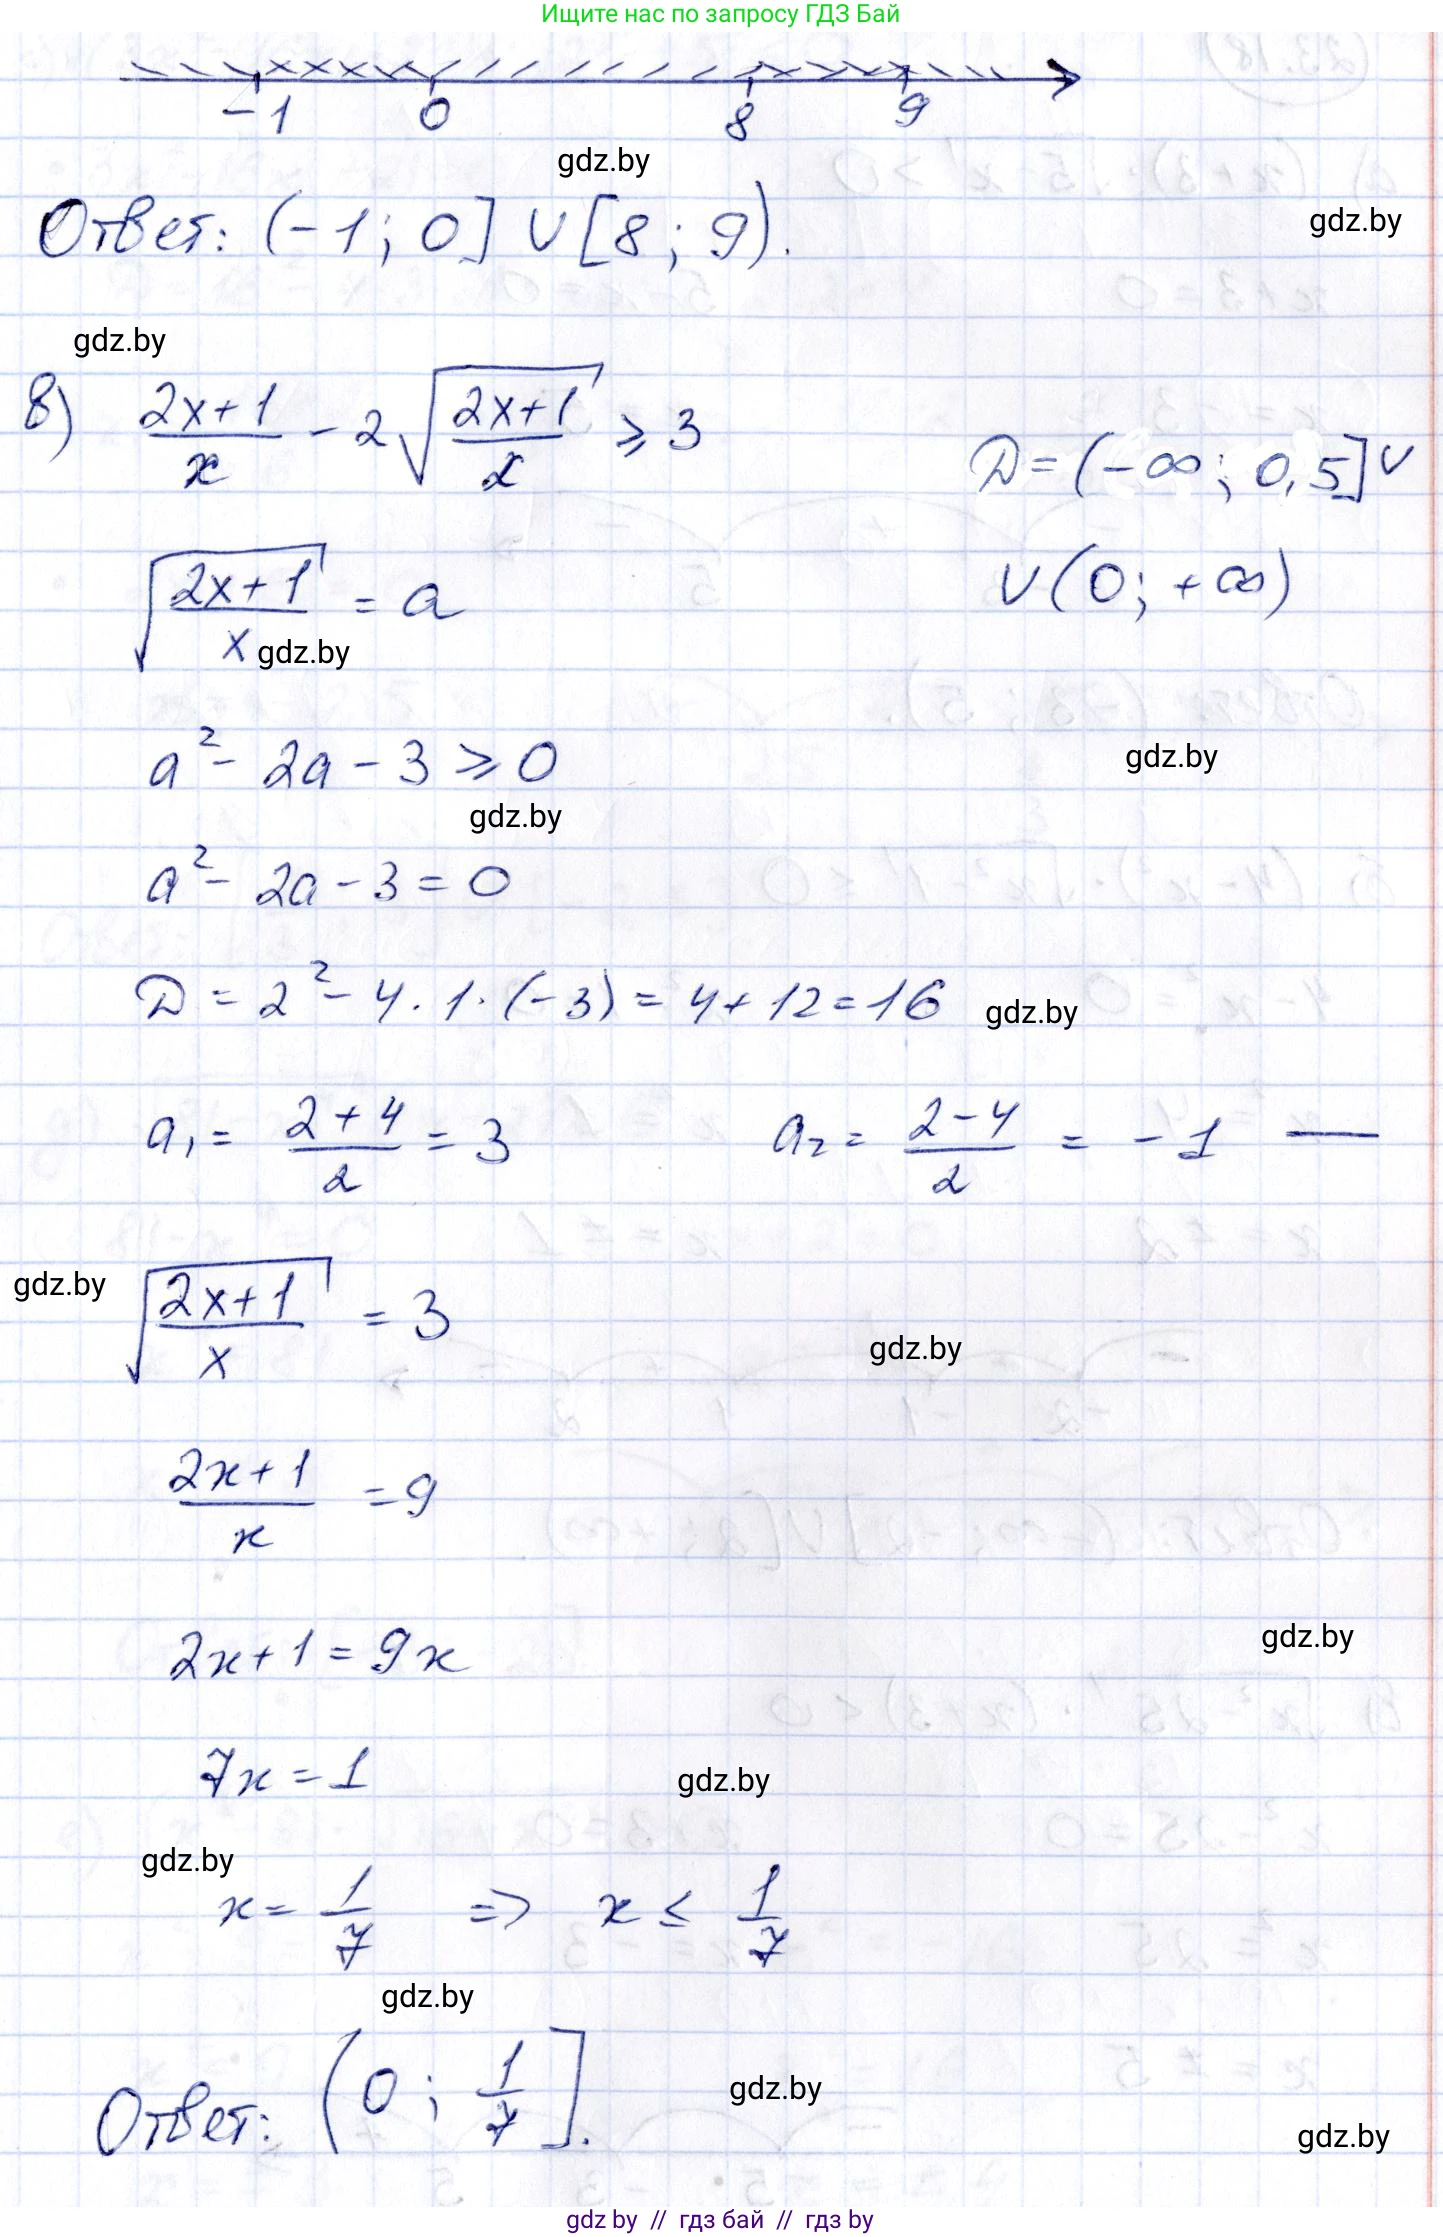 Ищите нас по запросу ГДЗ Бай
-1 0 8 9
gdz.by
Ответ: (-1; 0] ∪ [8; 9).
gdz.by
gdz.by
в) (2x+1)/x - 2√((2x+1)/x) ⩾ 3
D = (-∞; 0,5] ∪
√((2x+1)/x) = a
∪ (0; +∞)
gdz.by
a² - 2a - 3 ⩾ 0
gdz.by
gdz.by
a² - 2a - 3 = 0
D = 2² - 4 · 1 · (-3) = 4 + 12 = 16
gdz.by
a₁ = (2+4)/2 = 3 a₂ = (2-4)/2 = -1 —
gdz.by
√((2x+1)/x) = 3
gdz.by
(2x+1)/x = 9
2x+1 = 9x
gdz.by
7x = 1
gdz.by
gdz.by
x = 1/7 => x ≤ 1/7
gdz.by
Ответ: (0; 1/7].
gdz.by
gdz.by
gdz by // гдз бай // гдз by